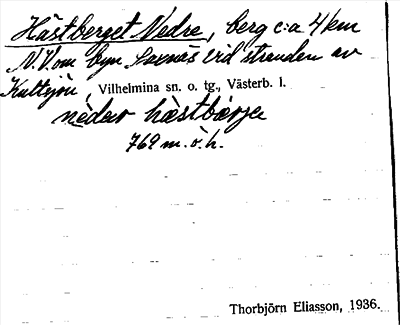 Hästberget Nedre, berg c:a 4 km
N.V. om byn Saxnäs vid stranden av
Kultsjön, Vilhelmina sn. o. tg., Västerb. l.
nèdar hæstbærjə
769 m. ö. h.
Thorbjörn Eliasson, 1936.